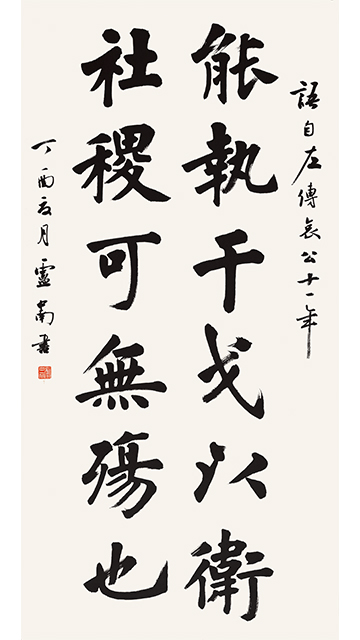 語自左傳哀公十一年
能執干戈以衛
社稷可無殤也
丁酉夏月靈書